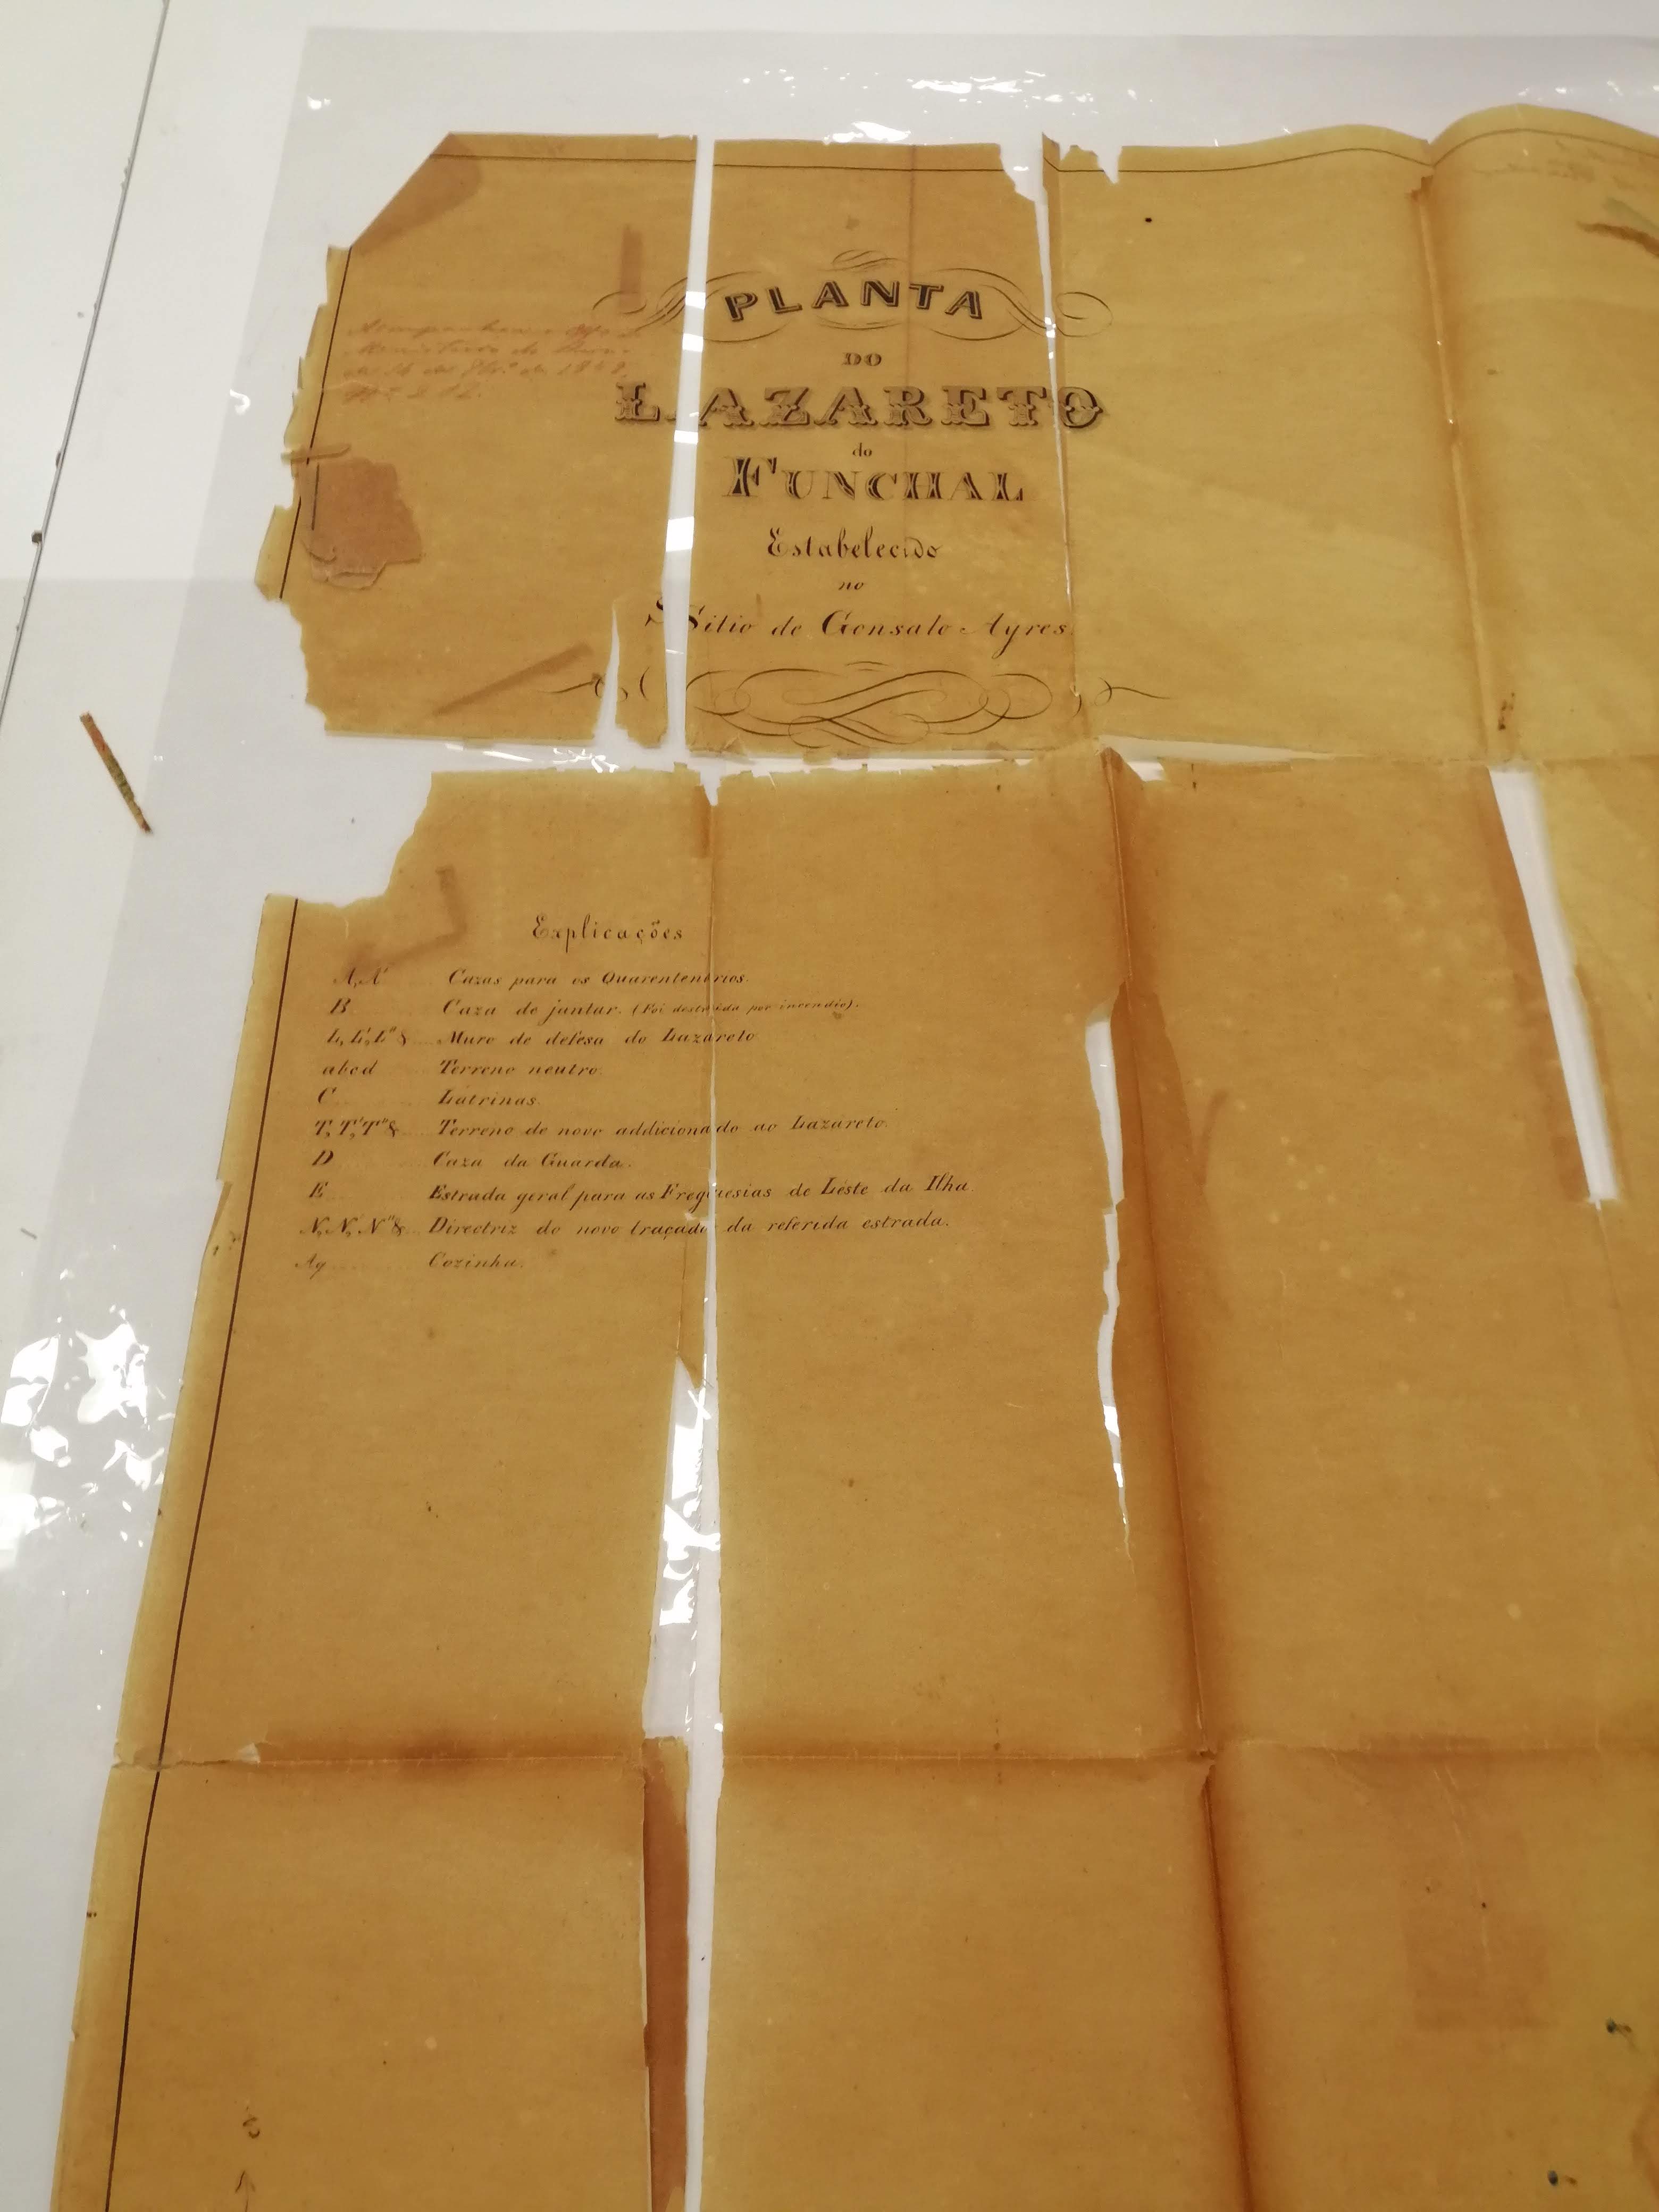 PLANTA
DO
LAZARETO
do
FUNCHAL
Estabelecido
no
Sitio de Gonsalo Ayres
Explicações
A, A' Cazas para os Quarentenarios.
B Caza de jantar. (Foi destruida por incendio).
L, L', L'' & Muro de defesa do Lazareto
abcd Terreno neutro.
C Latrinas.
T, T', T'' & Terreno de novo addicionado ao Lazareto.
D Caza da Guarda.
E Estrada geral para as Freguesias de Léste da Ilha.
N, N', N'' & Directriz do novo traçado da referida estrada.
Ag Cozinha.